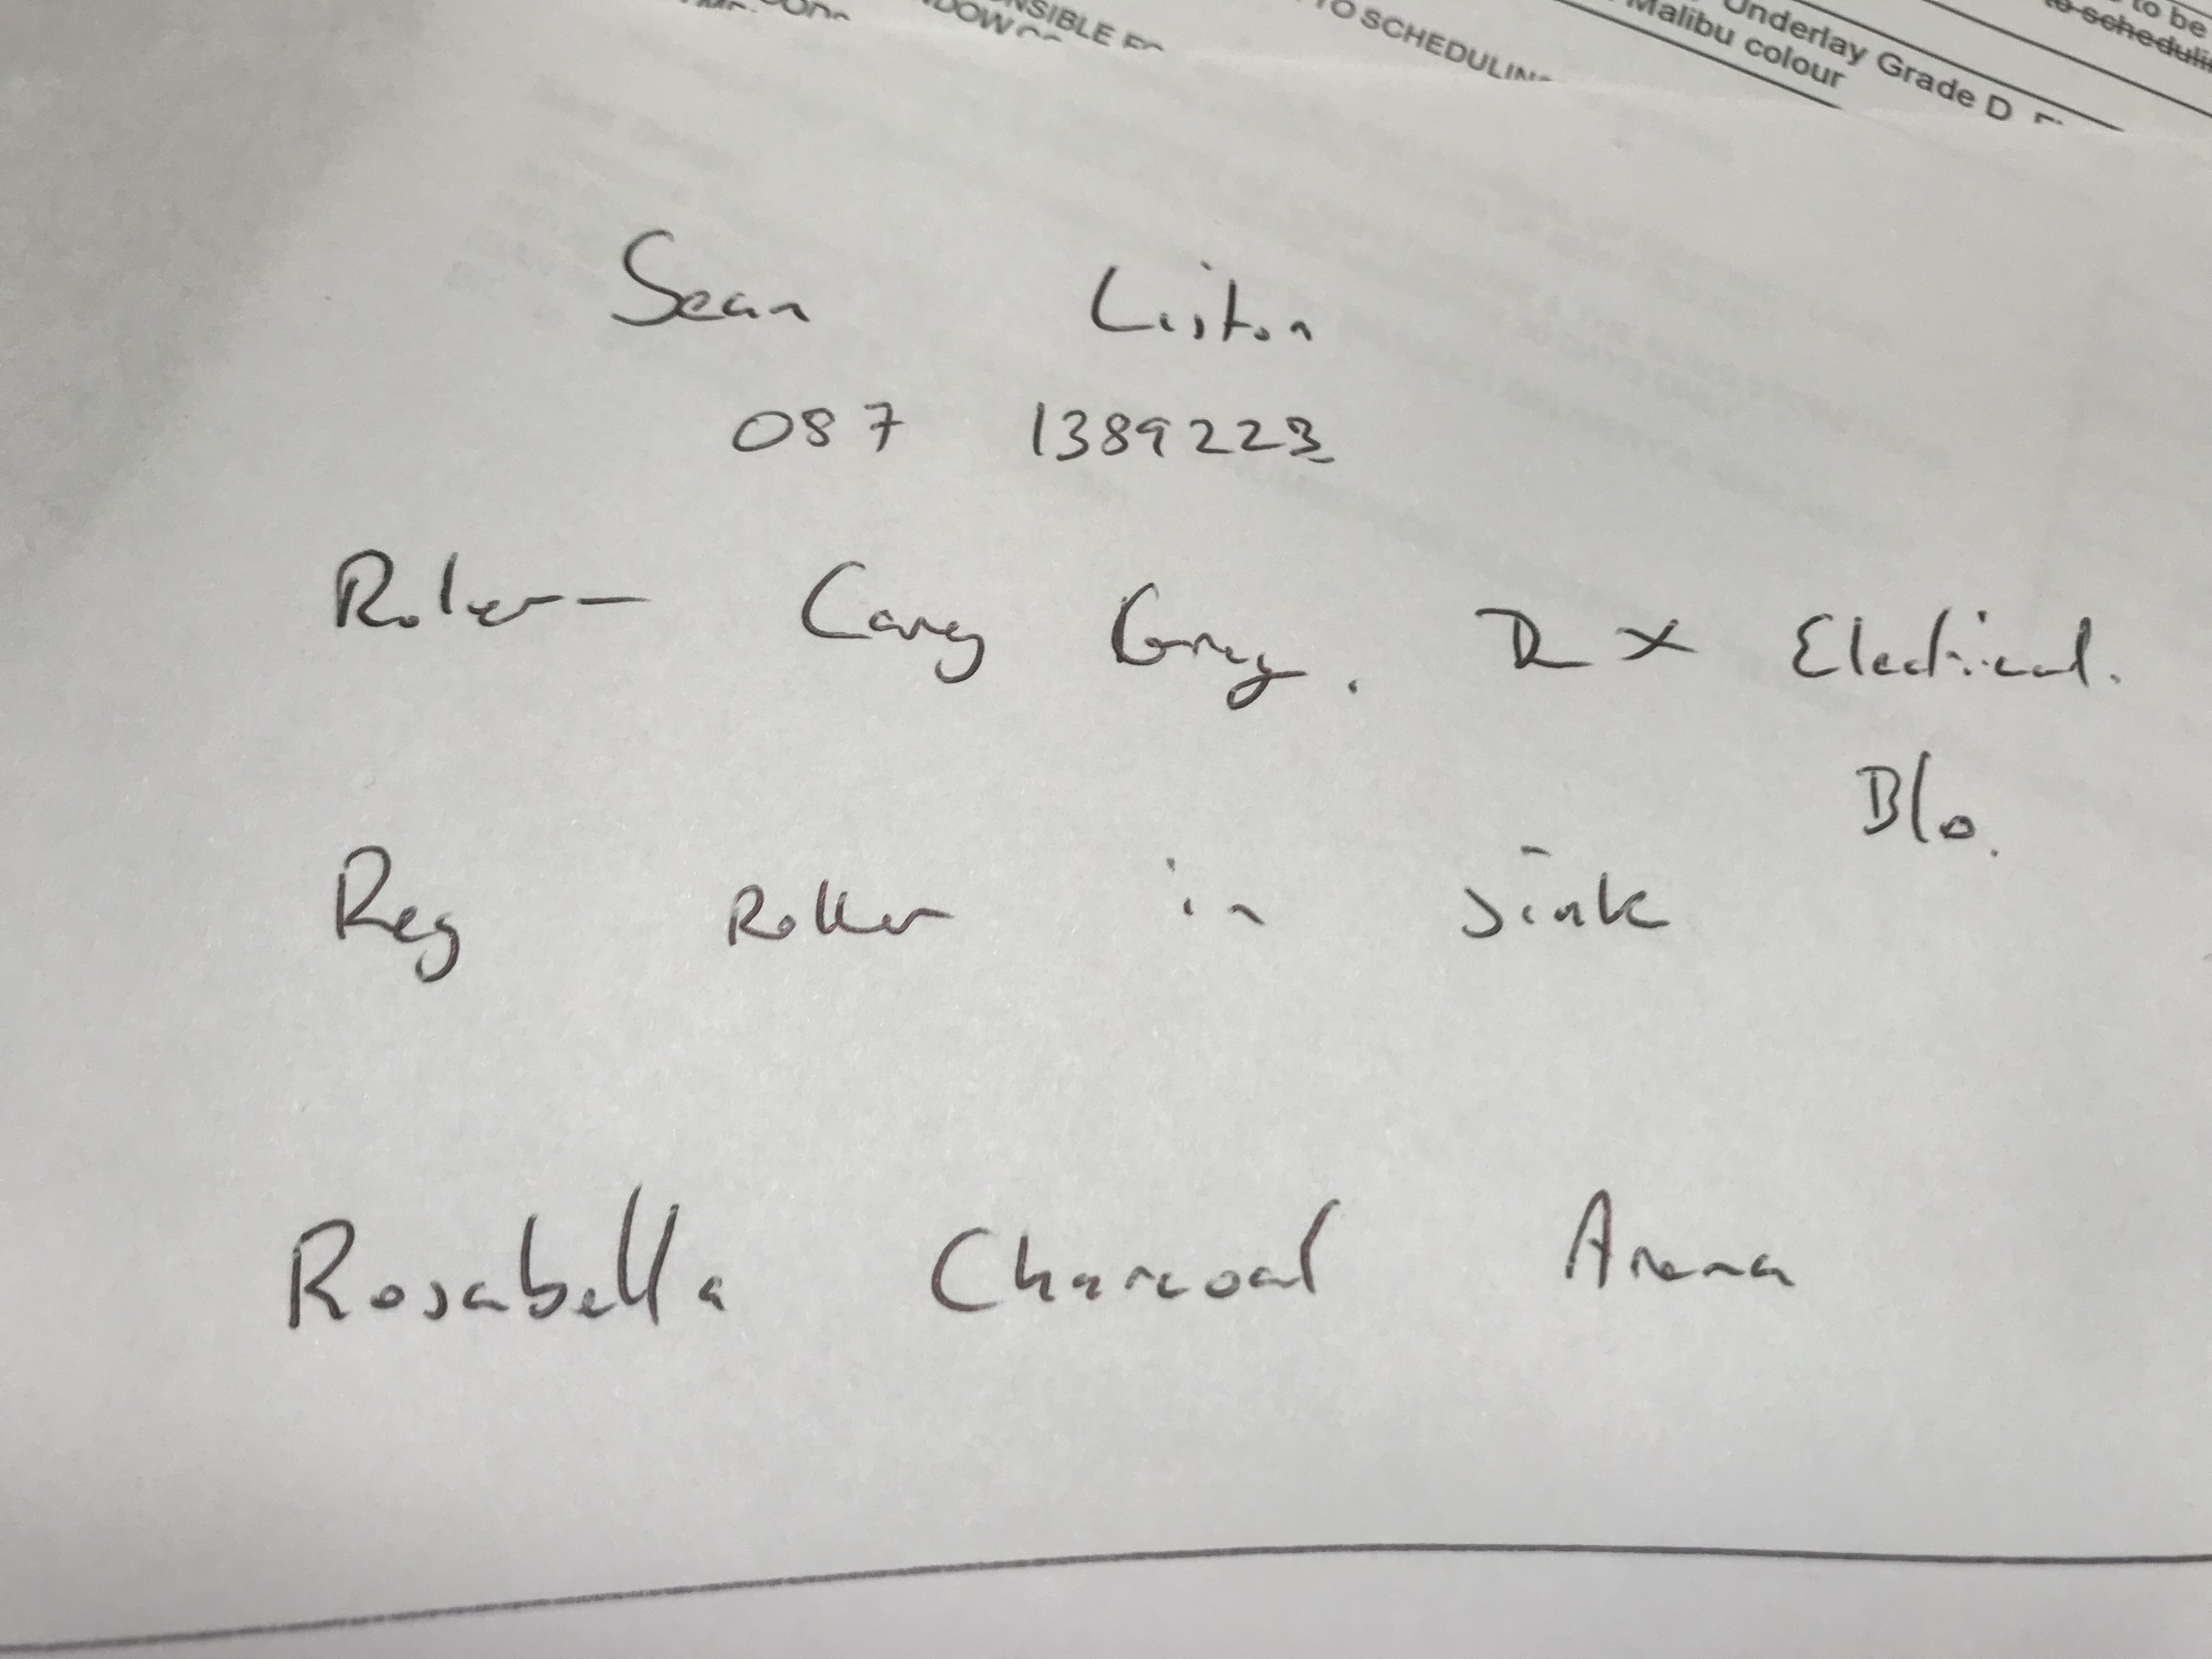 NSIBLE
TO SCHEDULIN
Underlay Grade D
Malibu colour
to be
Sean Liston
087 1389223
Roller - Carey Grey. D X Electrical.
B/o.
Reg Roller in sink
Rosabella Charcoal Arena